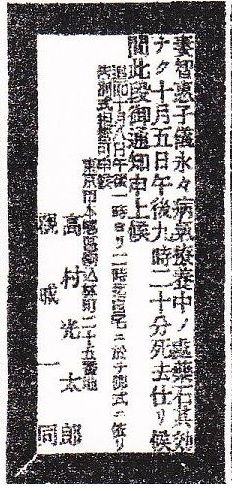 妻智惠子儀永々病氣療養中ノ處藥石其効
ナク十月五日午後九時二十分死去仕リ候
間此段御通知申上候
追而十月八日午後一時ヨリ二時迄自宅ニ於テ佛式ニ依リ
告別式相營可申候
東京市本鄕區駒込林町二十五番地
高村光太郎
親戚一同